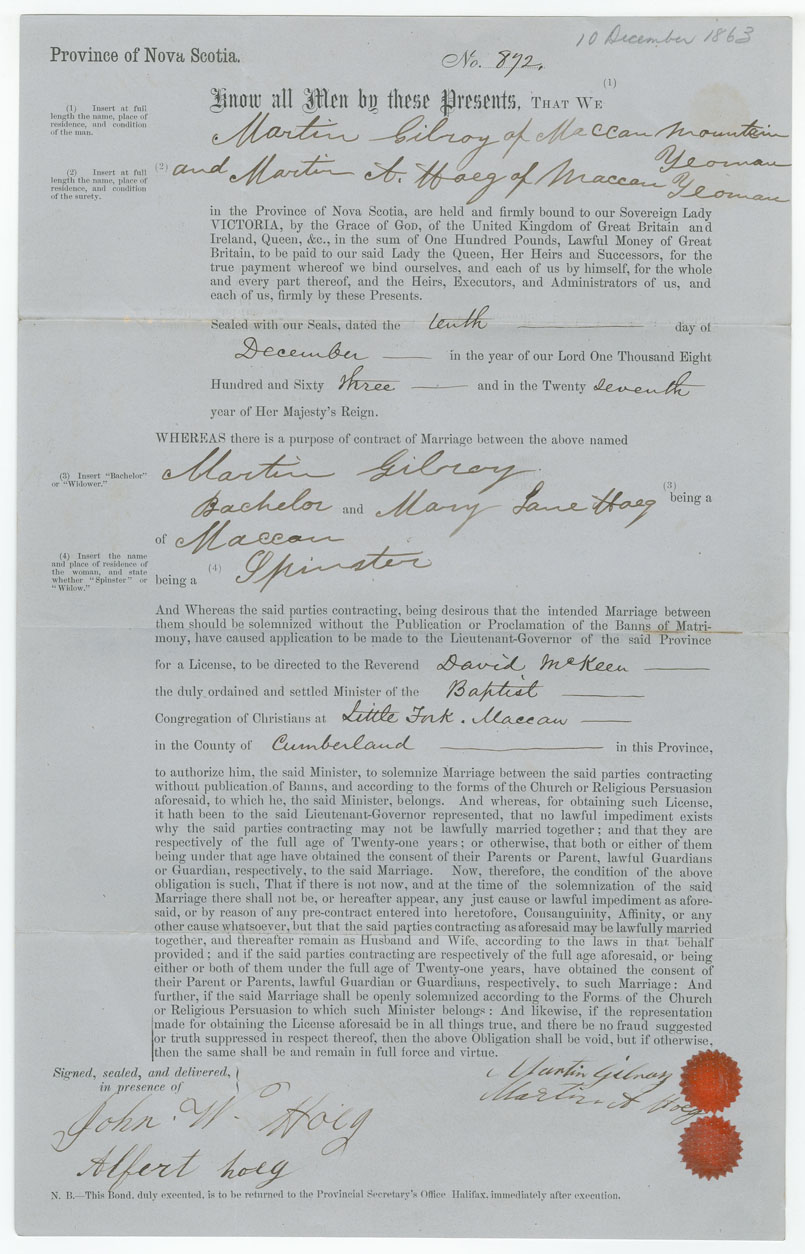 10 December 1863
Province of Nova Scotia.
No. 872.
(1)
Know all Men by these Presents, THAT WE
(1) Insert at full
length the name, place of
residence, and condition
of the man.
Martin Gilroy of Maccan Mountain
Yeoman
(2) Insert at full
length the name, place of
residence, and condition
of the surety.
(2) and Martin A. Hoeg of Maccan Yeoman
in the Province of Nova Scotia, are held and firmly bound to our Sovereign Lady
VICTORIA, by the Grace of GOD, of the United Kingdom of Great Britain and
Ireland, Queen, &c., in the sum of One Hundred Pounds, Lawful Money of Great
Britain, to be paid to our said Lady the Queen, Her Heirs and Successors, for the
true payment whereof we bind ourselves, and each of us by himself, for the whole
and every part thereof, and the Heirs, Executors, and Administrators of us, and
each of us, firmly by these Presents.
Sealed with our Seals, dated the tenth day of
December in the year of our Lord One Thousand Eight
Hundred and Sixty three and in the Twenty seventh
year of Her Majesty's Reign.
WHEREAS there is a purpose of contract of Marriage between the above named
(3) Insert "Bachelor"
or "Widower."
Martin Gilroy
(3)
being a
Bachelor and Mary Jane Hoeg
of Maccan
(4) Insert the name
and place of residence of
the woman, and state
whether "Spinster" or
"Widow."
being a (4) Spinster
And Whereas the said parties contracting, being desirous that the intended Marriage between
them should be solemnized without the Publication or Proclamation of the Banns of Matri-
mony, have caused application to be made to the Lieutenant-Governor of the said Province
for a License, to be directed to the Reverend David McKeen
the duly ordained and settled Minister of the Baptist
Congregation of Christians at Little Fork. Maccan
in the County of Cumberland in this Province,
to authorize him, the said Minister, to solemnize Marriage between the said parties contracting
without publication of Banns, and according to the forms of the Church or Religious Persuasion
aforesaid, to which he, the said Minister, belongs. And whereas, for obtaining such License,
it hath been to the said Lieutenant-Governor represented, that no lawful impediment exists
why the said parties contracting may not be lawfully married together; and that they are
respectively of the full age of Twenty-one years; or otherwise, that both or either of them
being under that age have obtained the consent of their Parents or Parent, lawful Guardians
or Guardian, respectively, to the said Marriage. Now, therefore, the condition of the above
obligation is such, That if there is not now, and at the time of the solemnization of the said
Marriage there shall not be, or hereafter appear, any just cause or lawful impediment as afore-
said, or by reason of any pre-contract entered into heretofore, Consanguinity, Affinity, or any
other cause whatsoever, but that the said parties contracting as aforesaid may be lawfully married
together, and thereafter remain as Husband and Wife, according to the laws in that behalf
provided; and if the said parties contracting are respectively of the full age aforesaid, or being
either or both of them under the full age of Twenty-one years, have obtained the consent of
their Parent or Parents, lawful Guardian or Guardians, respectively, to such Marriage: And
further, if the said Marriage shall be openly solemnized according to the Forms of the Church
or Religious Persuasion to which such Minister belongs: And likewise, if the representation
made for obtaining the License aforesaid be in all things true, and there be no fraud suggested
or truth suppressed in respect thereof, then the above Obligation shall be void, but if otherwise,
then the same shall be and remain in full force and virtue.
Signed, sealed, and delivered,
in presence of
Martin Gilroy
Martin A Hoeg
John. W. Hoeg
Alfert hoeg
N. B.—This Bond, duly executed, is to be returned to the Provincial Secretary's Office Halifax, immediately after execution.